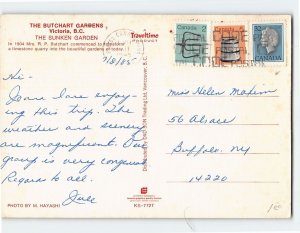 THE BUTCHART GARDENS
Victoria, B.C.
THE SUNKEN GARDEN
In 1904 Mrs. R. P. Butchart commenced to transform
a limestone quarry into the beautiful gardens of today.
Traveltime
PRODUCT
9/8/85
Hi -
Joann & I are enjoy-
ing this trip. The
weather and scenery
are magnificent. Our
group is very congenial
Regards to all.
PHOTO BY M. HAYASHI
KS-7727
Miss Helen Maxim
56 Alsace
Buffalo, NY
14220